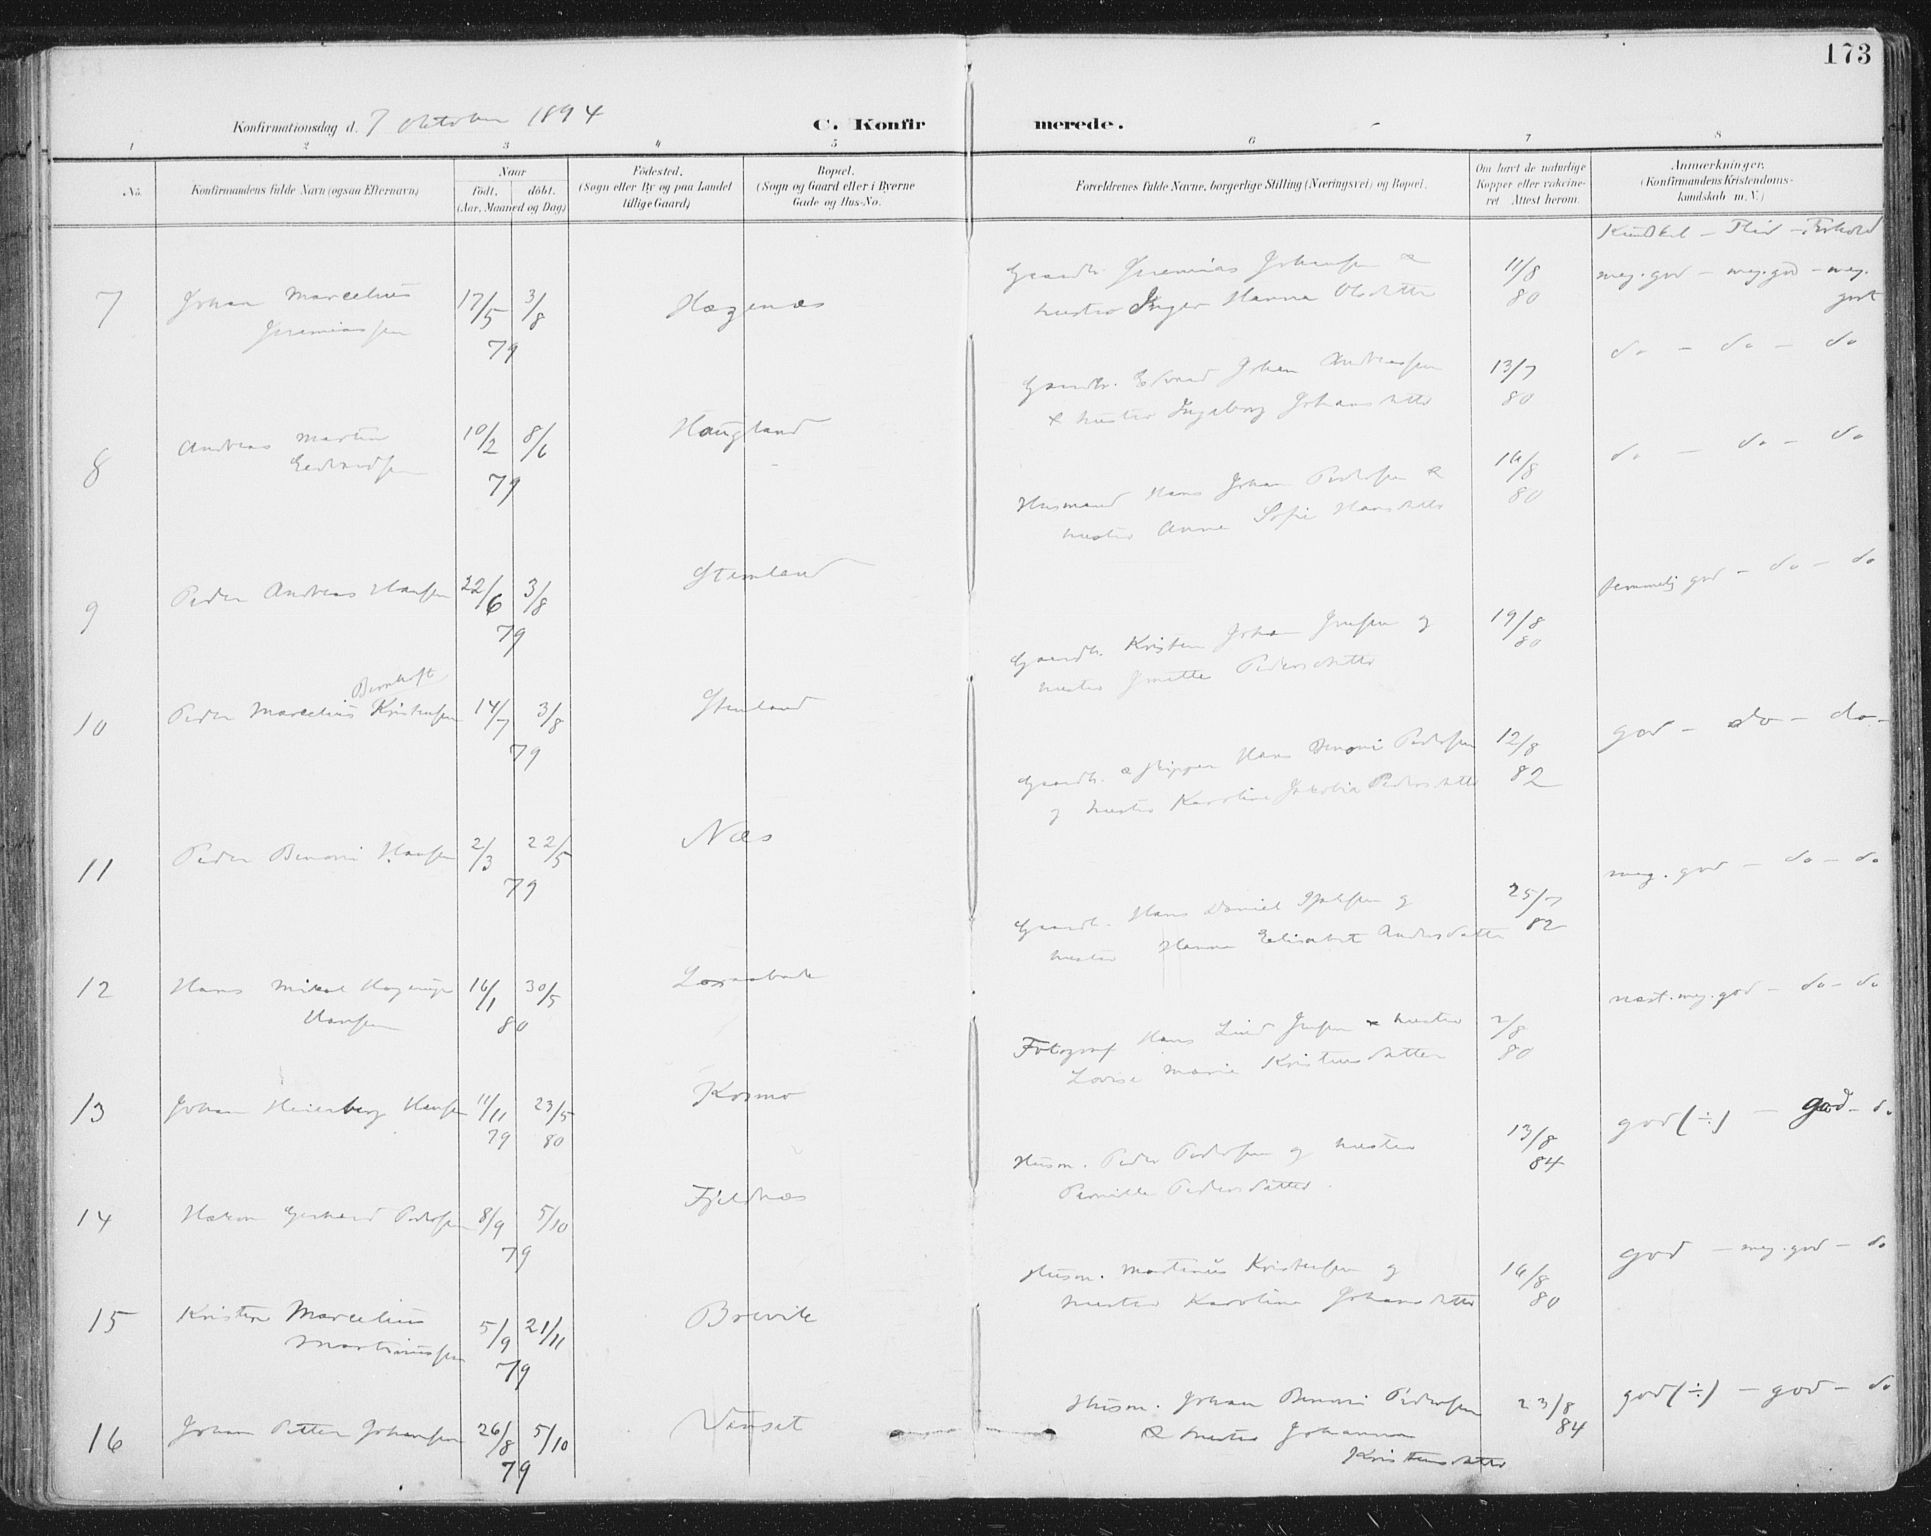 173
Konfirmationsdag d. 7 Oktober 1894
C. Konfirmerede.
1 2 3 4 5 6 7 8
No.
Konfirmandens fulde Navn (ogsaa Efternavn)
Naar
født. døbt.
(Aar, Maaned og Dag)
Födested.
(Sogn eller By og paa Landet
tillige Gaard)
Bopæl.
(Sogn og Gaard eller i Byerne
Gade og Hus-No.
Forældrenes fulde Navne, borgerlige Stilling (Næringsvei) og Bopæl.
Om havt de naturlige
Kopper eller vakcine-
ret Attest herom.
Anmærkninger.
(Konfirmandens Kristendoms-
kundskab m. V.)
Kundskab — Flid — Forhold
7 Johan Marcelius 17/5 3/8 Hægenæs
Jeremiassen 79
Gaardbr. Jeremias Johansen &
hustru Inger Hanna Olsdatter
11/8 80
meg. god — meg. god — meg.
godt
8 Andreas Martin 10/2 8/6 Haugland
Edvardsen 79
Gaardbr. Edvard Johan Andreassen
& hustru Ingeborg Johansdatter
13/7 80
do — do — do
9 Peder Andreas Hansen 22/6 3/8 Stenland
79
Husmand Hans Johan Pedersen &
hustru Anne Sofie Hansdatter
16/8 80
do — do — do
Bernhoft
10 Peder Marcelius Kristensen 14/7 3/8 Stenland
79
Gaardbr. Kristen Johan Jensen og
hustru Pedersdatter
19/8 80
temmelig god — do — do
11 Peder Benoni Hansen 2/3 22/5 Næs
79
Gaardb. & skipper Hans Benoni Pedersen
og hustru Karoline Jakobia Pedersdatter
12/8 82
god — do — do —
12 Hans Mikal 16/1 30/5
Hansen 80
Gaardb. Hans Daniel og
hustru Hanna Elisabet Andersdatter
25/7 82
meg. god — do — do
13 Johan Heienberg Hansen 11/11 23/5 Kosmo
79 80
Fotograf Hans Lind Jensen & hustru
Lovise Marie Kristensdatter
2/8 80
næst. meg. god — do — do
14 Hakon Gerhard Pedersen 8/9 5/10 Fjeldnæs
79
Husm. Peder Pedersen og hustru
Pernille Pedersdatter.
13/8 84
god (÷) — god — do
15 Kristen Marcelius 5/9 21/11 Brevik
Martinussen 79
Husm. Martinus Kristensen og
hustru Karoline Johansdatter
16/8 80
god — meg. god — do
16 Johan Petter Johansen 26/8 5/10 Vanset
79
Husm. Johan Benoni Pedersen
& hustru Johanna
Kristensdatter
23/8 84
god (÷) — god — do